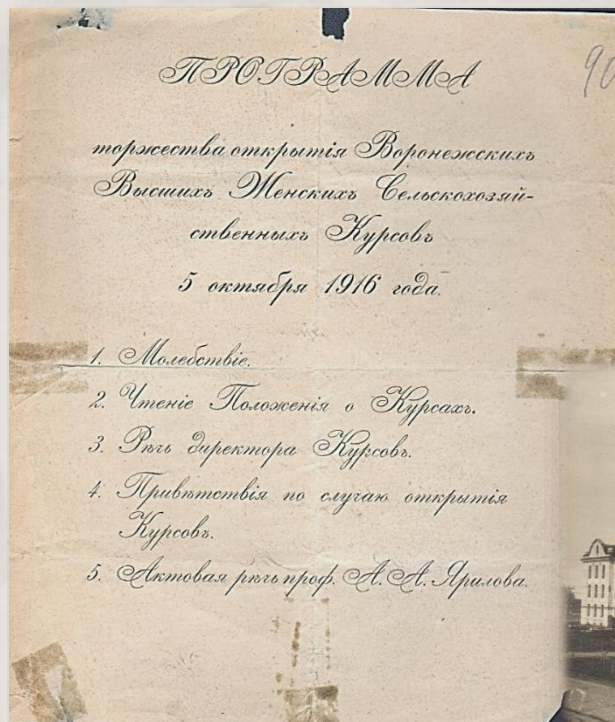 ПРОГРАММА
90
торжества открытія Воронежскихъ
Высшихъ Женскихъ Сельскохозяй-
ственныхъ Курсовъ
5 октября 1916 года.
1. Молебствіе.
2. Чтеніе Положенія о Курсахъ.
3. Рѣчь директора Курсовъ.
4. Привѣтствія по случаю открытія
Курсовъ.
5. Актовая рѣчь проф. А. А. Ярилова.